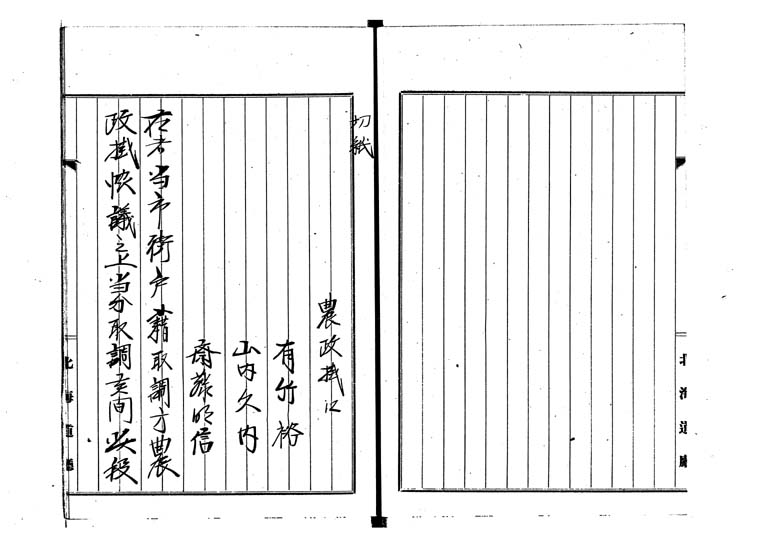 切紙
農政掛江
有竹裕
山内久内
斎藤明信
右者当市街戸籍取調方農
政掛快議之上当分取調候間此段
北海道廳
北海道廳